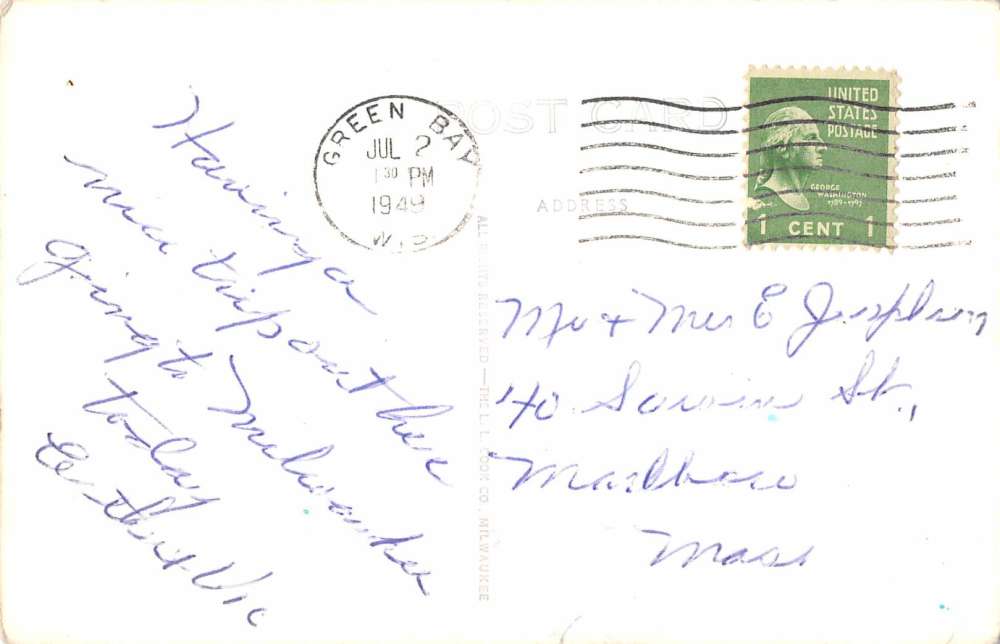 POST CARD
GREEN BAY
JUL 2
1 30 PM
1949
WIS
UNITED
STATES
POSTAGE
GEORGE
WASHINGTON
1789-1797
1 CENT 1
ADDRESS
Having a
nice trip out here
going to Milwaukee
today
& Vic
ALL RIGHTS RESERVED — THE L. L. COOK CO., MILWAUKEE
Mr + Mrs E
40 St.,
Marlboro
Mass